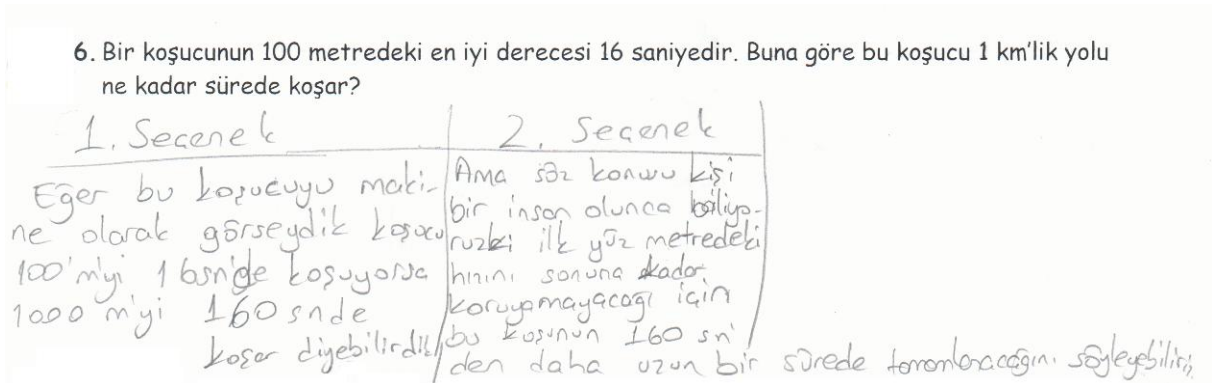 6. Bir koşucunun 100 metredeki en iyi derecesi 16 saniyedir. Buna göre bu koşucu 1 km'lik yolu
ne kadar sürede koşar?
1. Seçenek
Eğer bu koşucuyu maki-
ne olarak görseydik koşucu
100'm'yi 16sn'de koşuyorsa
1000 m'yi 160 snde
koşar diyebilirdik
2. Seçenek
Ama söz konusu kişi
bir insan olunca biliyo-
ruzki ilk yüz metredeki
hızını sonuna kadar
koruyamayacağı için
bu koşunun 160 sn'
den daha uzun bir sürede tamamlanacağını söyleyebiliriz.